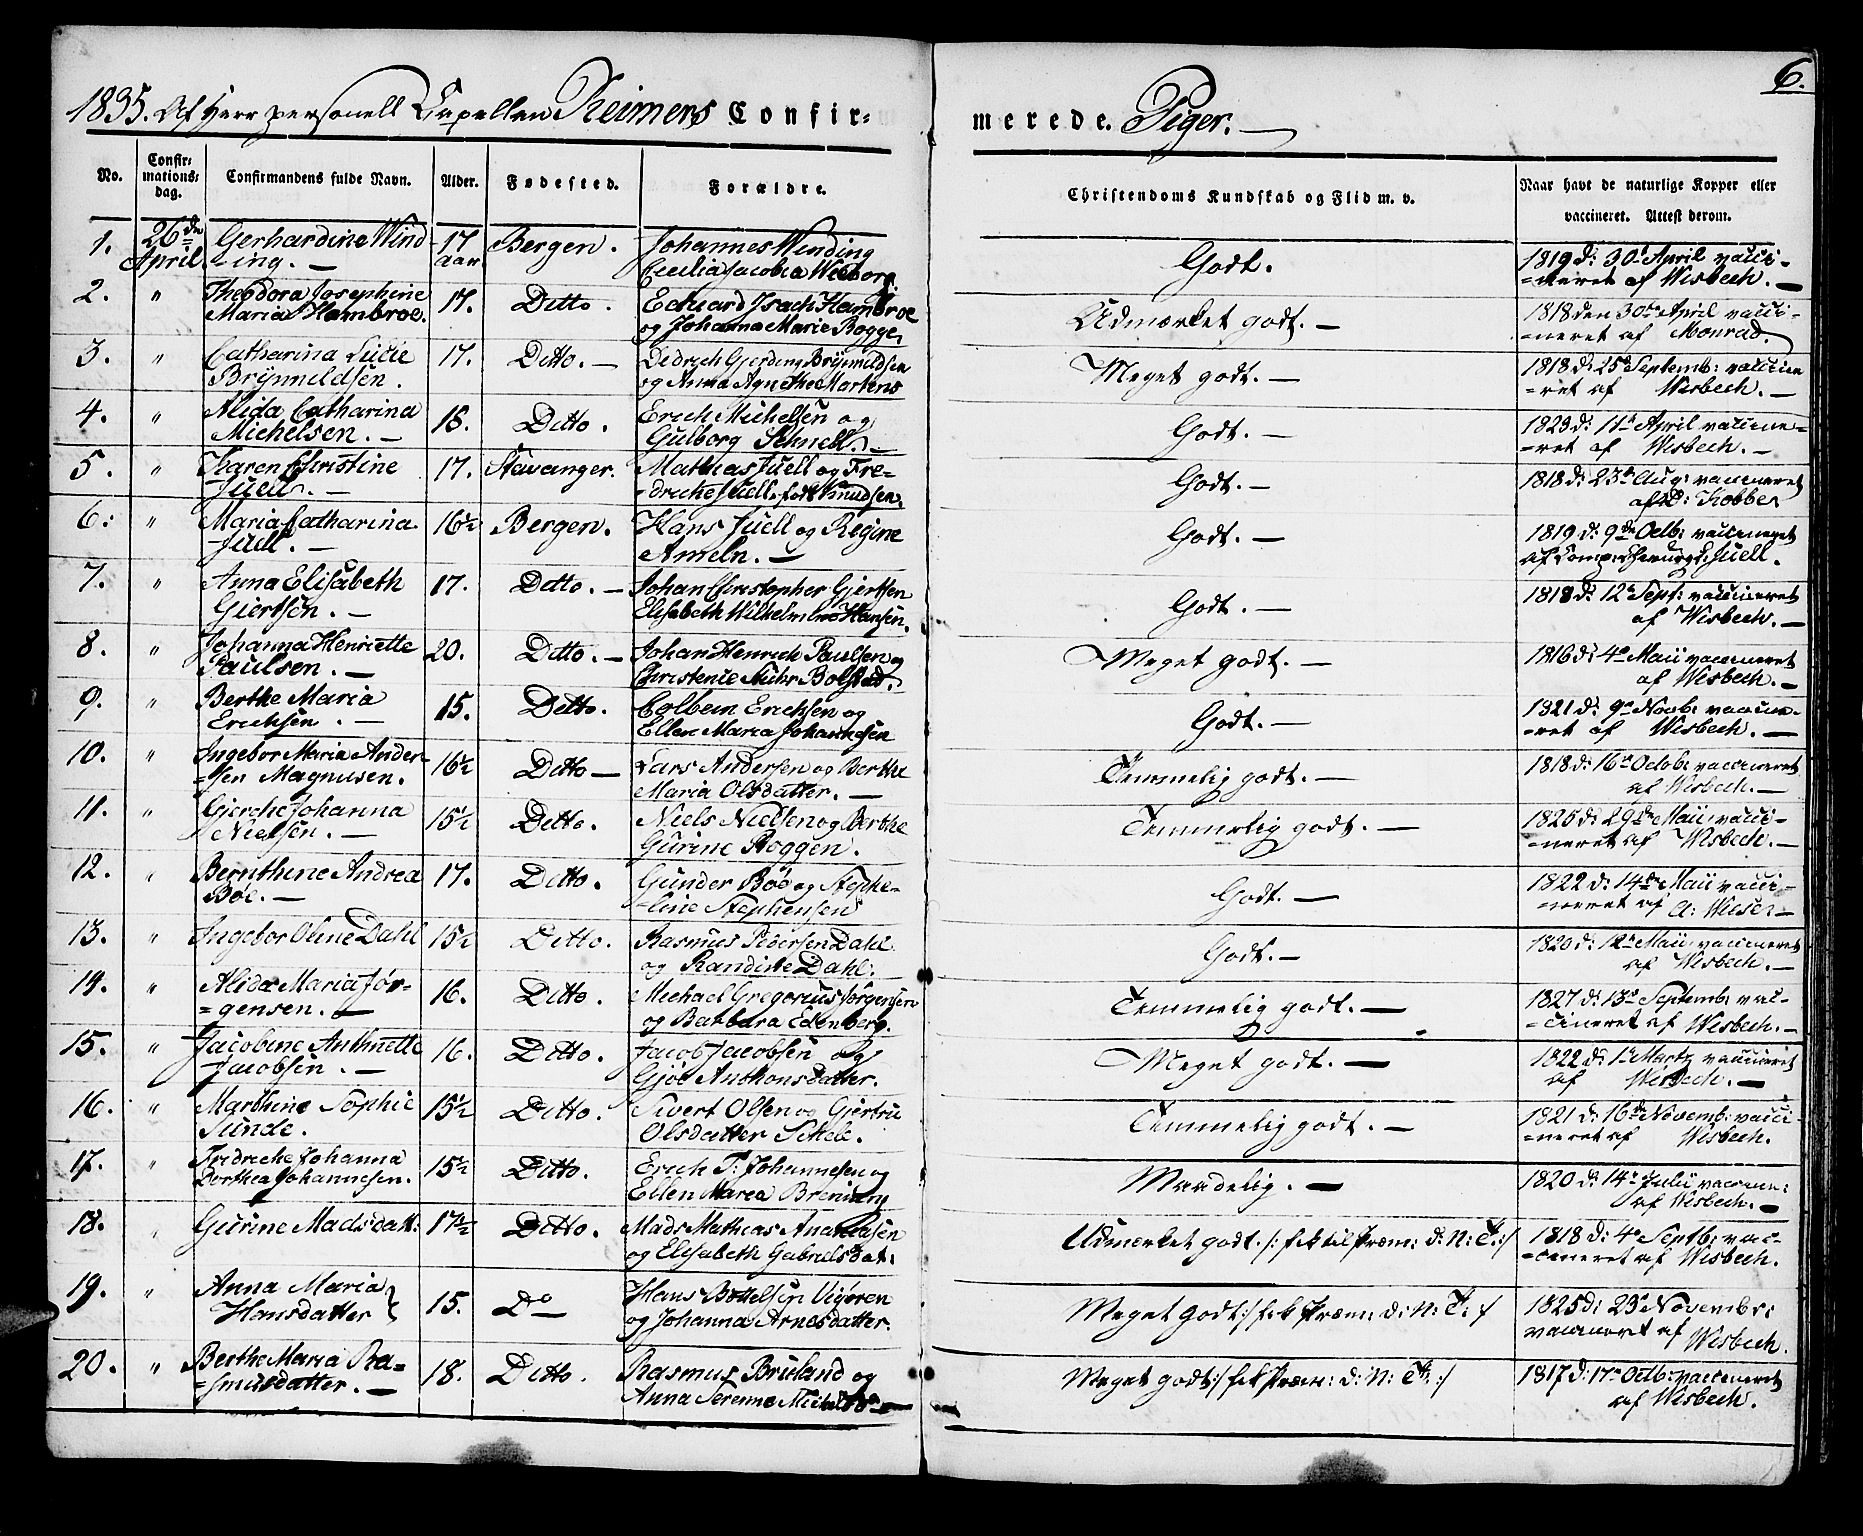 6.
1835. Af Herr personell Capellan Reimers Confirmerede Piger.
No. Confirmationsdag. Confirmandens fulde Navn. Alder. Fødested. Forældre. Christendoms Kundskab og Flid m. v. Naar havt de naturlige Kopper eller vaccineret. Attest derom.
1. 26de April. Gerhardine Winding. 17 aar Bergen. Johannes Winding Cecilia Jacobia Wesborg Godt. 1819 d: 30 April vaccineret af Wisbech.
2. " Theodora Josephine Maria Hambroe. 17. Ditto. Eduard Isach Hambroe og Johanna Marie Rogge. Udmærket godt. 1818 den 30te April vaccineret af Monrad.
3. " Catharina Lucie Brynnildsen. 17. Ditto. Didrich Gjerding Brynnildsen og Anna Agnethe Martens Meget godt. 1818 d: 25de Septemb: vaccineret af Wisbech.
4. " Alida Catharina Michelsen. 15. Ditto. Erich Michelsen og Gulborg Schnell. Godt. 1823 d: 11te April vaccineret af Wisbech.
5. " Karen Christine Juell. 17. Stavanger. Mathias Juell og Fredricke Juell, født Knudsen. Godt. 1818 d: 23de Aug: vaccineret af Kobbe
6: " Maria Catharina Juell. 16½ Bergen. Hans Juell og Regine Ameln. Godt. 1819 d: 9de Octb: vaccineret af Comp: Chirurg: Juell.
7. " Anna Elisabeth Giertsen. 17. Ditto. Johan Christopher Giertsen Elisabeth Wilhelmine Hansen. Godt. 1818 d: 12te Sept: vaccineret af Wisbech.
8. " Johanna Henriette Paulsen. 20. Ditto. Johan Henrich Paulsen og Christenie Suhr Bolstad. Meget godt. 1816 d: 4de Maii vaccineret af Wisbech.
9. " Berthe Maria Erichsen. 15. Ditto. Colbein Erichsen og Ellen Maria Johannesen Godt. 1821 d: 9de Novb: vaccineret af Wisbech.
10. " Ingebor Maria Andersen Magnusen. 16½ Ditto Lars Andersen og Berthe Maria Olsdatter. Temmelig godt. 1818 d: 16de Octob: vaccineret af Wisbech.
11. " Gjerche Johanna Nielsen. 15½ Ditto. Niels Nielsen og Berthe Gurine Roggen. Temmelig godt. 1825 d: 29de Maii vaccineret af Wisbech.
12. " Bernthine Andrea Bøe. 17. Ditto. Gunder Bøe og Stepheline Stephensen Godt. 1822 d: 14de Maii vaccineret af A: Wieser
13. " Ingebor Oline Dahl 15½ Ditto. Rasmus Pedersen Dahl og Randine Dahl. Godt. 1820 d: 12te Maii vaccineret af Wisbech.
14. " Alida Maria Jørgensen. 16. Ditto. Michael Gregorius Jørgensen og Barbara Edenberg. Temmelig godt. 1827 d: 13de Septemb: vaccineret af Wisbech.
15. " Jacobine Anthnette Jacobsen. 16. Ditto. Jacob Jacobsen og Gjøe Anthonsdatter. Meget godt. 1822 d: 1te Martz vaccineret af Wisbech.
16. " Marthine Sophie Sunde. 15½ Ditto. Sivert Olsen og Gjertru Olsdatter Schele. Temmelig godt. 1821 d: 16de Novemb: vaccineret af Wisbech.
17. " Fridriche Johanna Dorthea Johannesen. 15½ Ditto. Erich T: Johannesen og Ellen Maria Brenning Maadelig. 1820 d: 14de Julii vaccine: af Wisbech.
18. " Gurine Madsdatt: 17½ Ditto. Mads Mathias Andreasen og Elisabeth Gabrielsdat: Udmærket godt. /: fik til Præm: d: N: T: :/ 1818 d: 4de Septb: vaccineret af Wisbech.
19. " Anna Maria Hansdatter 15. Do Hans Bottelsen Vigøren og Johanna Arnesdatter. Meget godt :/ fik Præm: d: N: T: / 1825 d: 23de Novembr: vaccineret af Wisbech.
20. " Berthe Maria Rasmusdatter. 18. Ditto. Rasmus Bruland og Anna Serenne Meget godt :/ fik Præm: d: N: T: :/ 1817 d: 17de Octb: vaccineret af Wisbech.